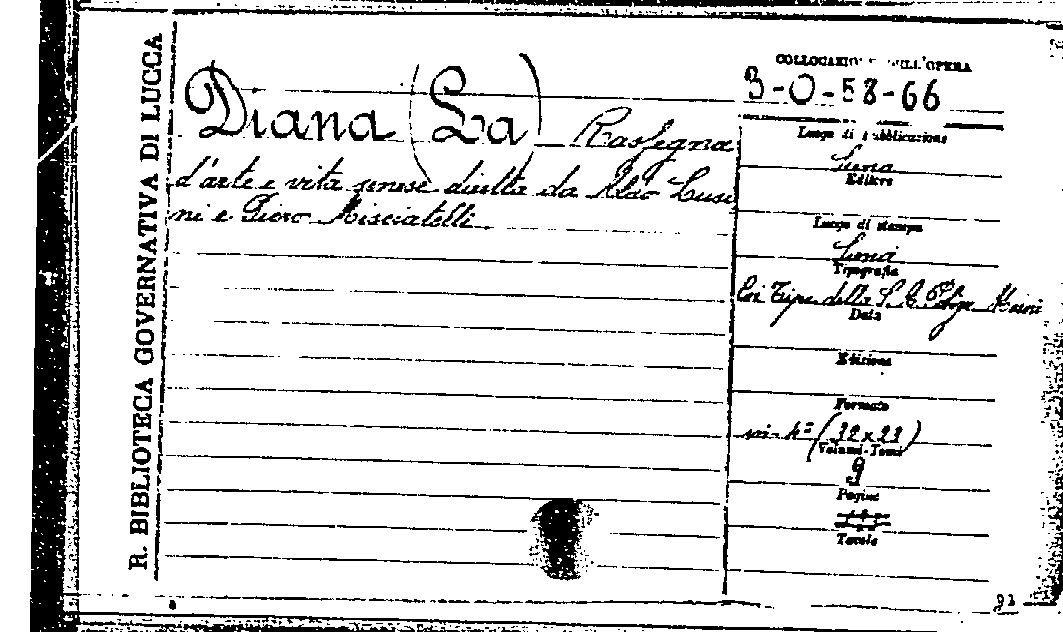 R. BIBLIOTECA GOVERNATIVA DI LUCCA
Diana (La) Rassegna
d'arte e vita senese diretta da Aldo Lusi
ni e Piero Misciatelli
COLLOCAZIONE DELL'OPERA
3-0-58-66
Luogo di pubblicazione
Siena
Editore
Luogo di stampa
Siena
Tipografia
Tip. della S. A.
Data
Edizione
Formato
in-4º (32x23)
Volumi-Tomi
9
Pagine
Tavole